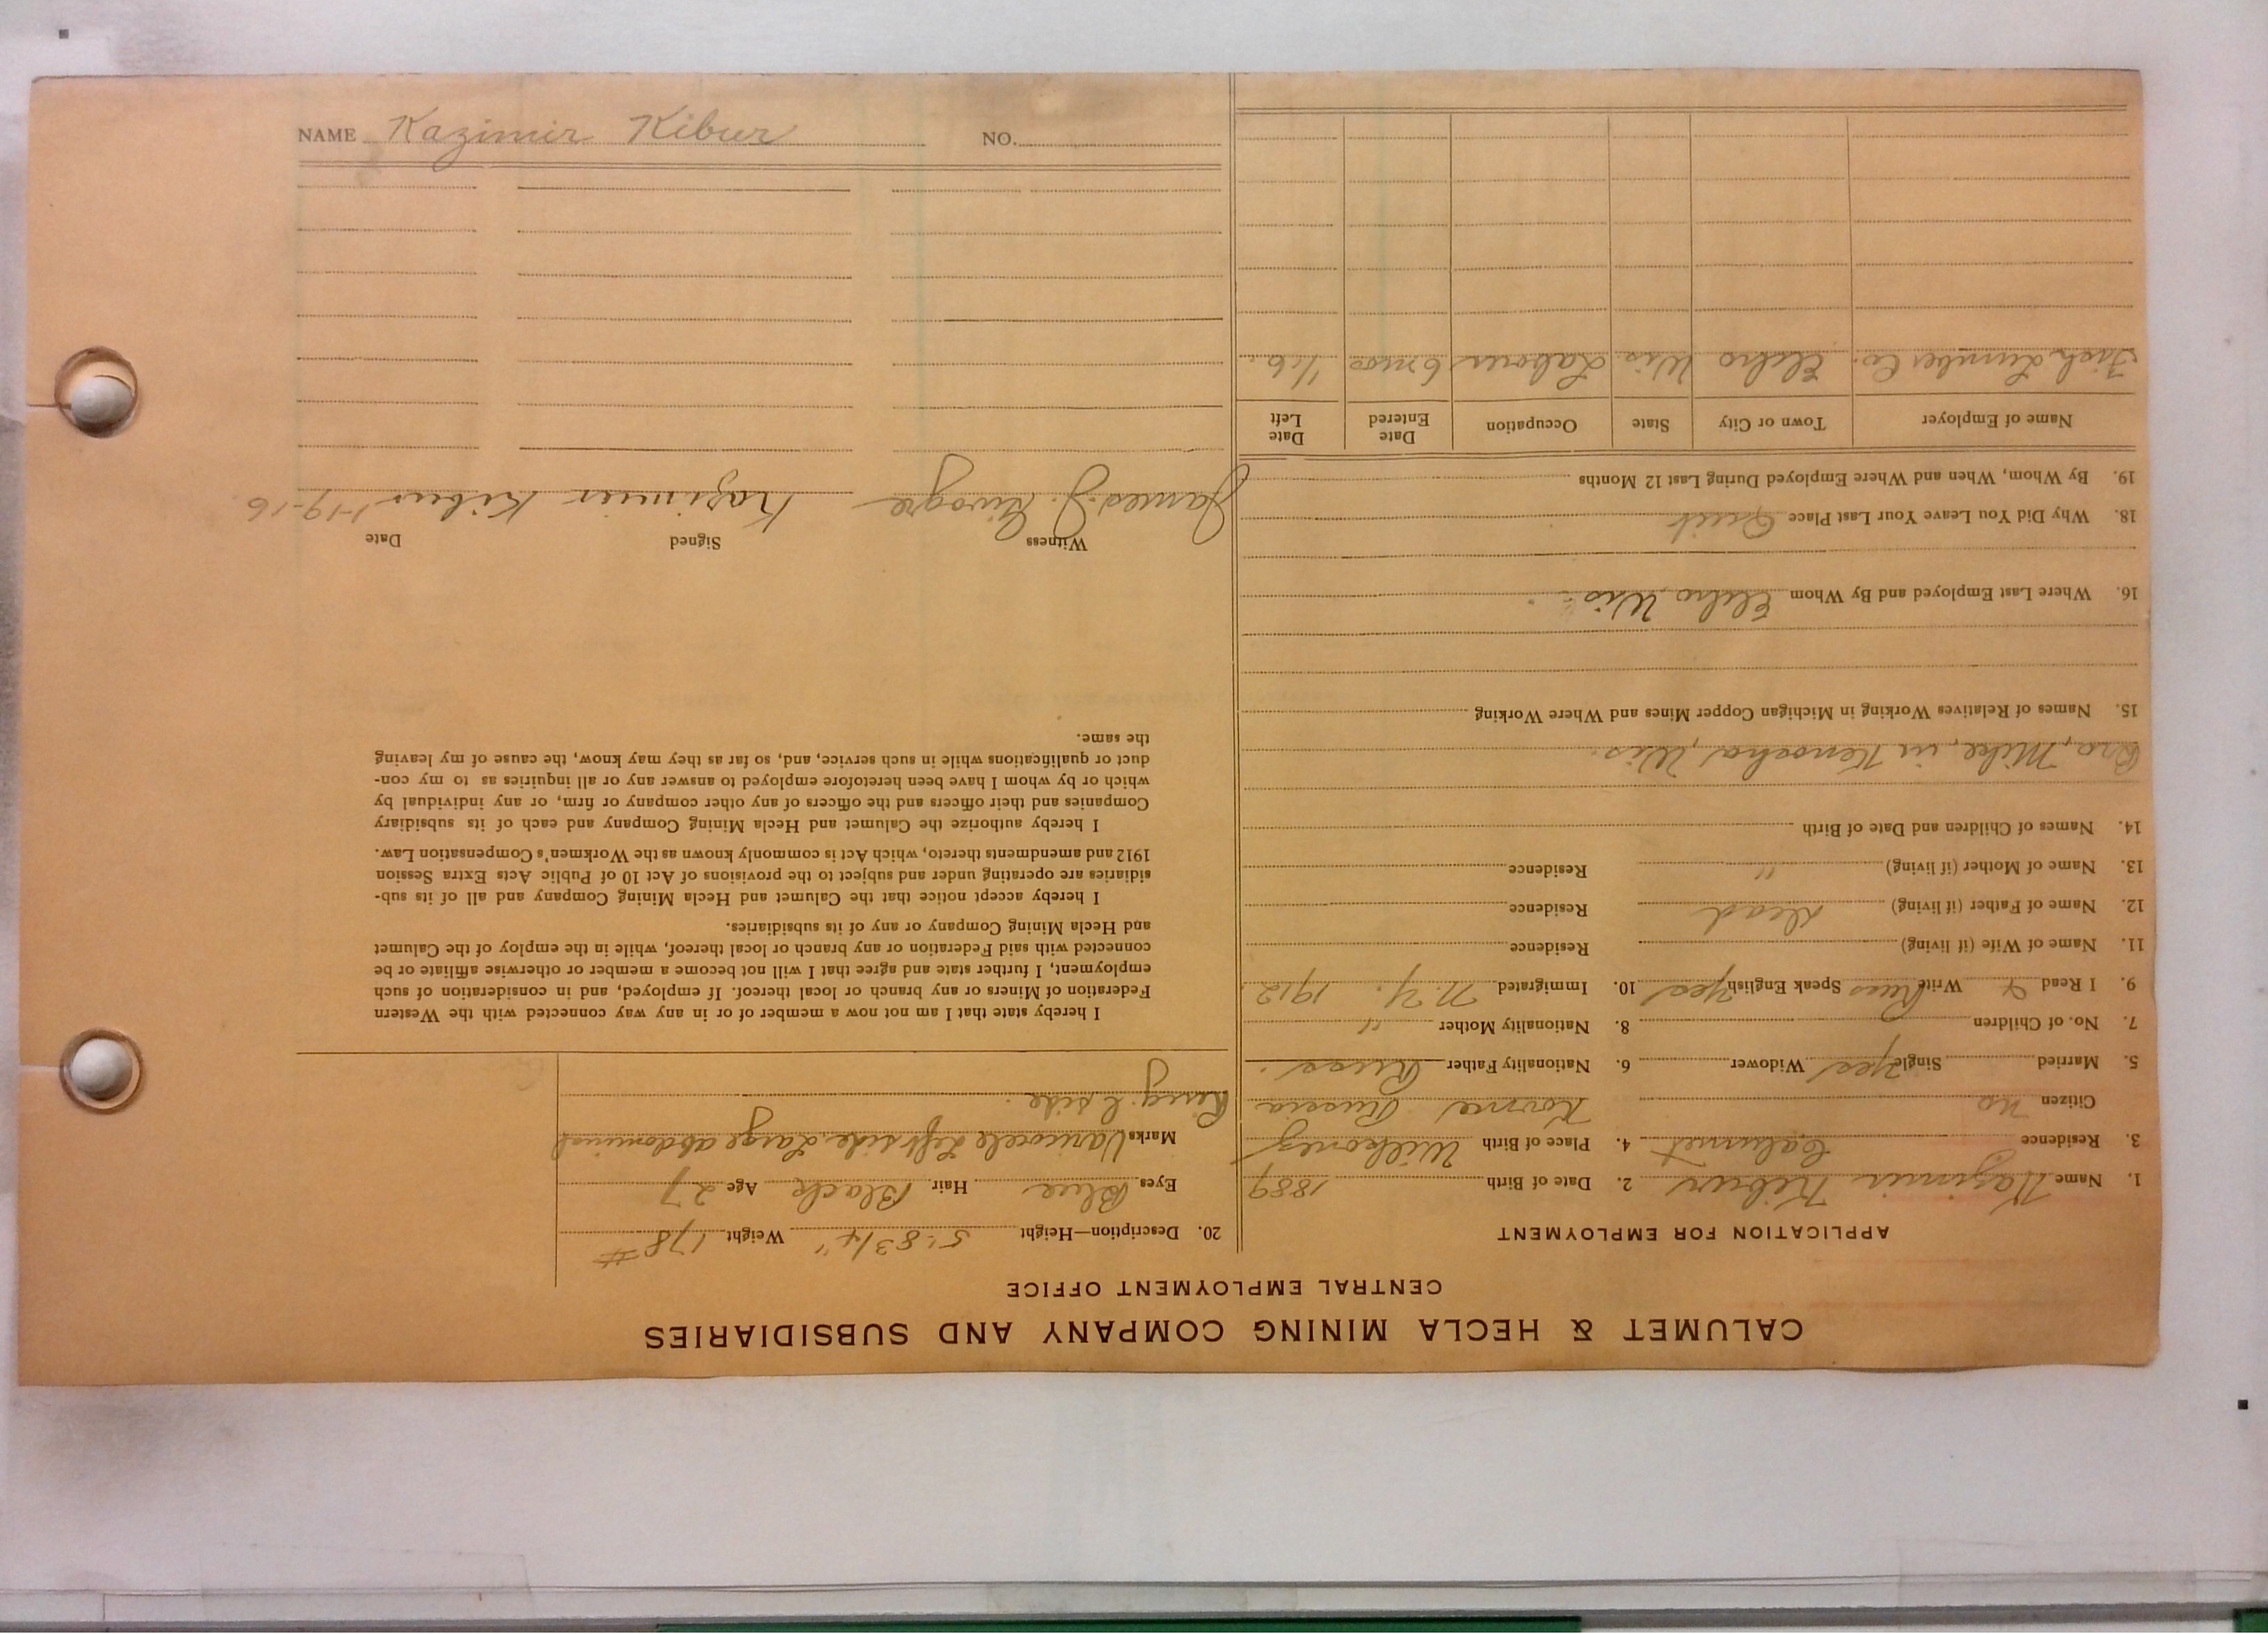 CALUMET & HECLA MINING COMPANY AND SUBSIDIARIES
CENTRAL EMPLOYMENT OFFICE
APPLICATION FOR EMPLOYMENT
1. Name Kazimir Kibur 2. Date of Birth 1889
3. Residence Calumet 4. Place of Birth Wilkonez
Citizen no Kovna Russia
5. Married Single yes Widower 6. Nationality Father Russ.
7. No. of Children 8. Nationality Mother "
9. I Read & Write Russ Speak English yes 10. Immigrated N.Y. 1912
11. Name of Wife (if living) Residence
12. Name of Father (if living) Dead Residence
13. Name of Mother (if living) " Residence
14. Names of Children and Date of Birth
Bro, Mike, in Kenosha, Wis.
15. Names of Relatives Working in Michigan Copper Mines and Where Working
16. Where Last Employed and By Whom Elcho, Wis.
18. Why Did You Leave Your Last Place Quit
19. By Whom, When and Where Employed During Last 12 Months
Name of Employer Town or City State Occupation Date Entered Date Left
Lumber Co. Elcho Wis Laborer 6 mos 1/16.
20. Description—Height 5' 8 3/4" Weight 178 #
Eyes Blue Hair Black Age 27
Marks Varicocele Left side. Large abdominal
Ring. L side.
I hereby state that I am not now a member of or in any way connected with the Western
Federation of Miners or any branch or local thereof. If employed, and in consideration of such
employment, I further state and agree that I will not become a member or otherwise affiliate or be
connected with said Federation or any branch or local thereof, while in the employ of the Calumet
and Hecla Mining Company or any of its subsidiaries.
I hereby accept notice that the Calumet and Hecla Mining Company and all of its sub-
sidiaries are operating under and subject to the provisions of Act 10 of Public Acts Extra Session
1912 and amendments thereto, which Act is commonly known as the Workmen's Compensation Law.
I hereby authorize the Calumet and Hecla Mining Company and each of its subsidiary
Companies and their officers and the officers of any other company or firm, or any individual by
which or by whom I have been heretofore employed to answer any or all inquiries as to my con-
duct or qualifications while in such service, and, so far as they may know, the cause of my leaving
the same.
Witness Signed Date
James J. Kazimier Kibur 1-19-16
NAME Kazimir Kibur NO.